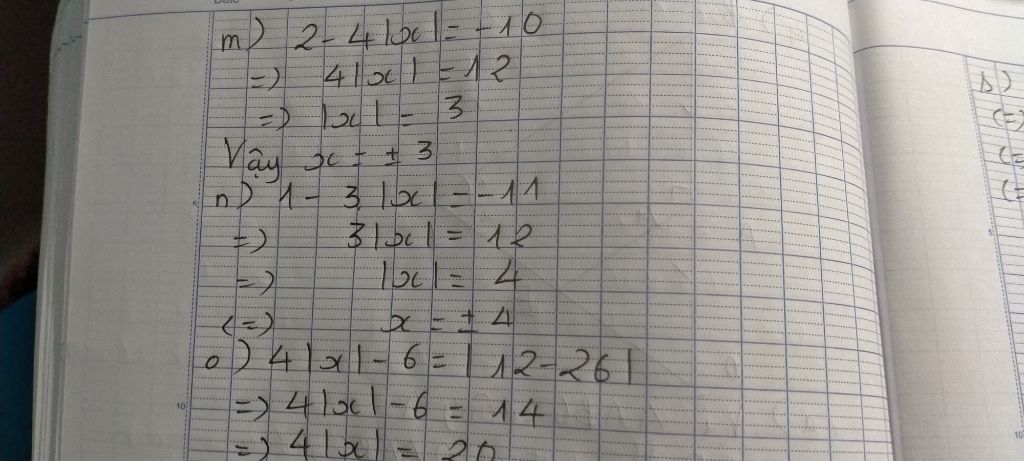 m) 2 - 4|x| = -10
=) 4|x| = 12
=) |x| = 3
Vậy x = ± 3
n) 1 - 3|x| = -11
=) 3|x| = 12
=) |x| = 4
(=) x = ± 4
o) 4|x| - 6 = |12 - 26|
=) 4|x| - 6 = 14
=) 4|x| = 20
b)
(=)
(=
(=
10